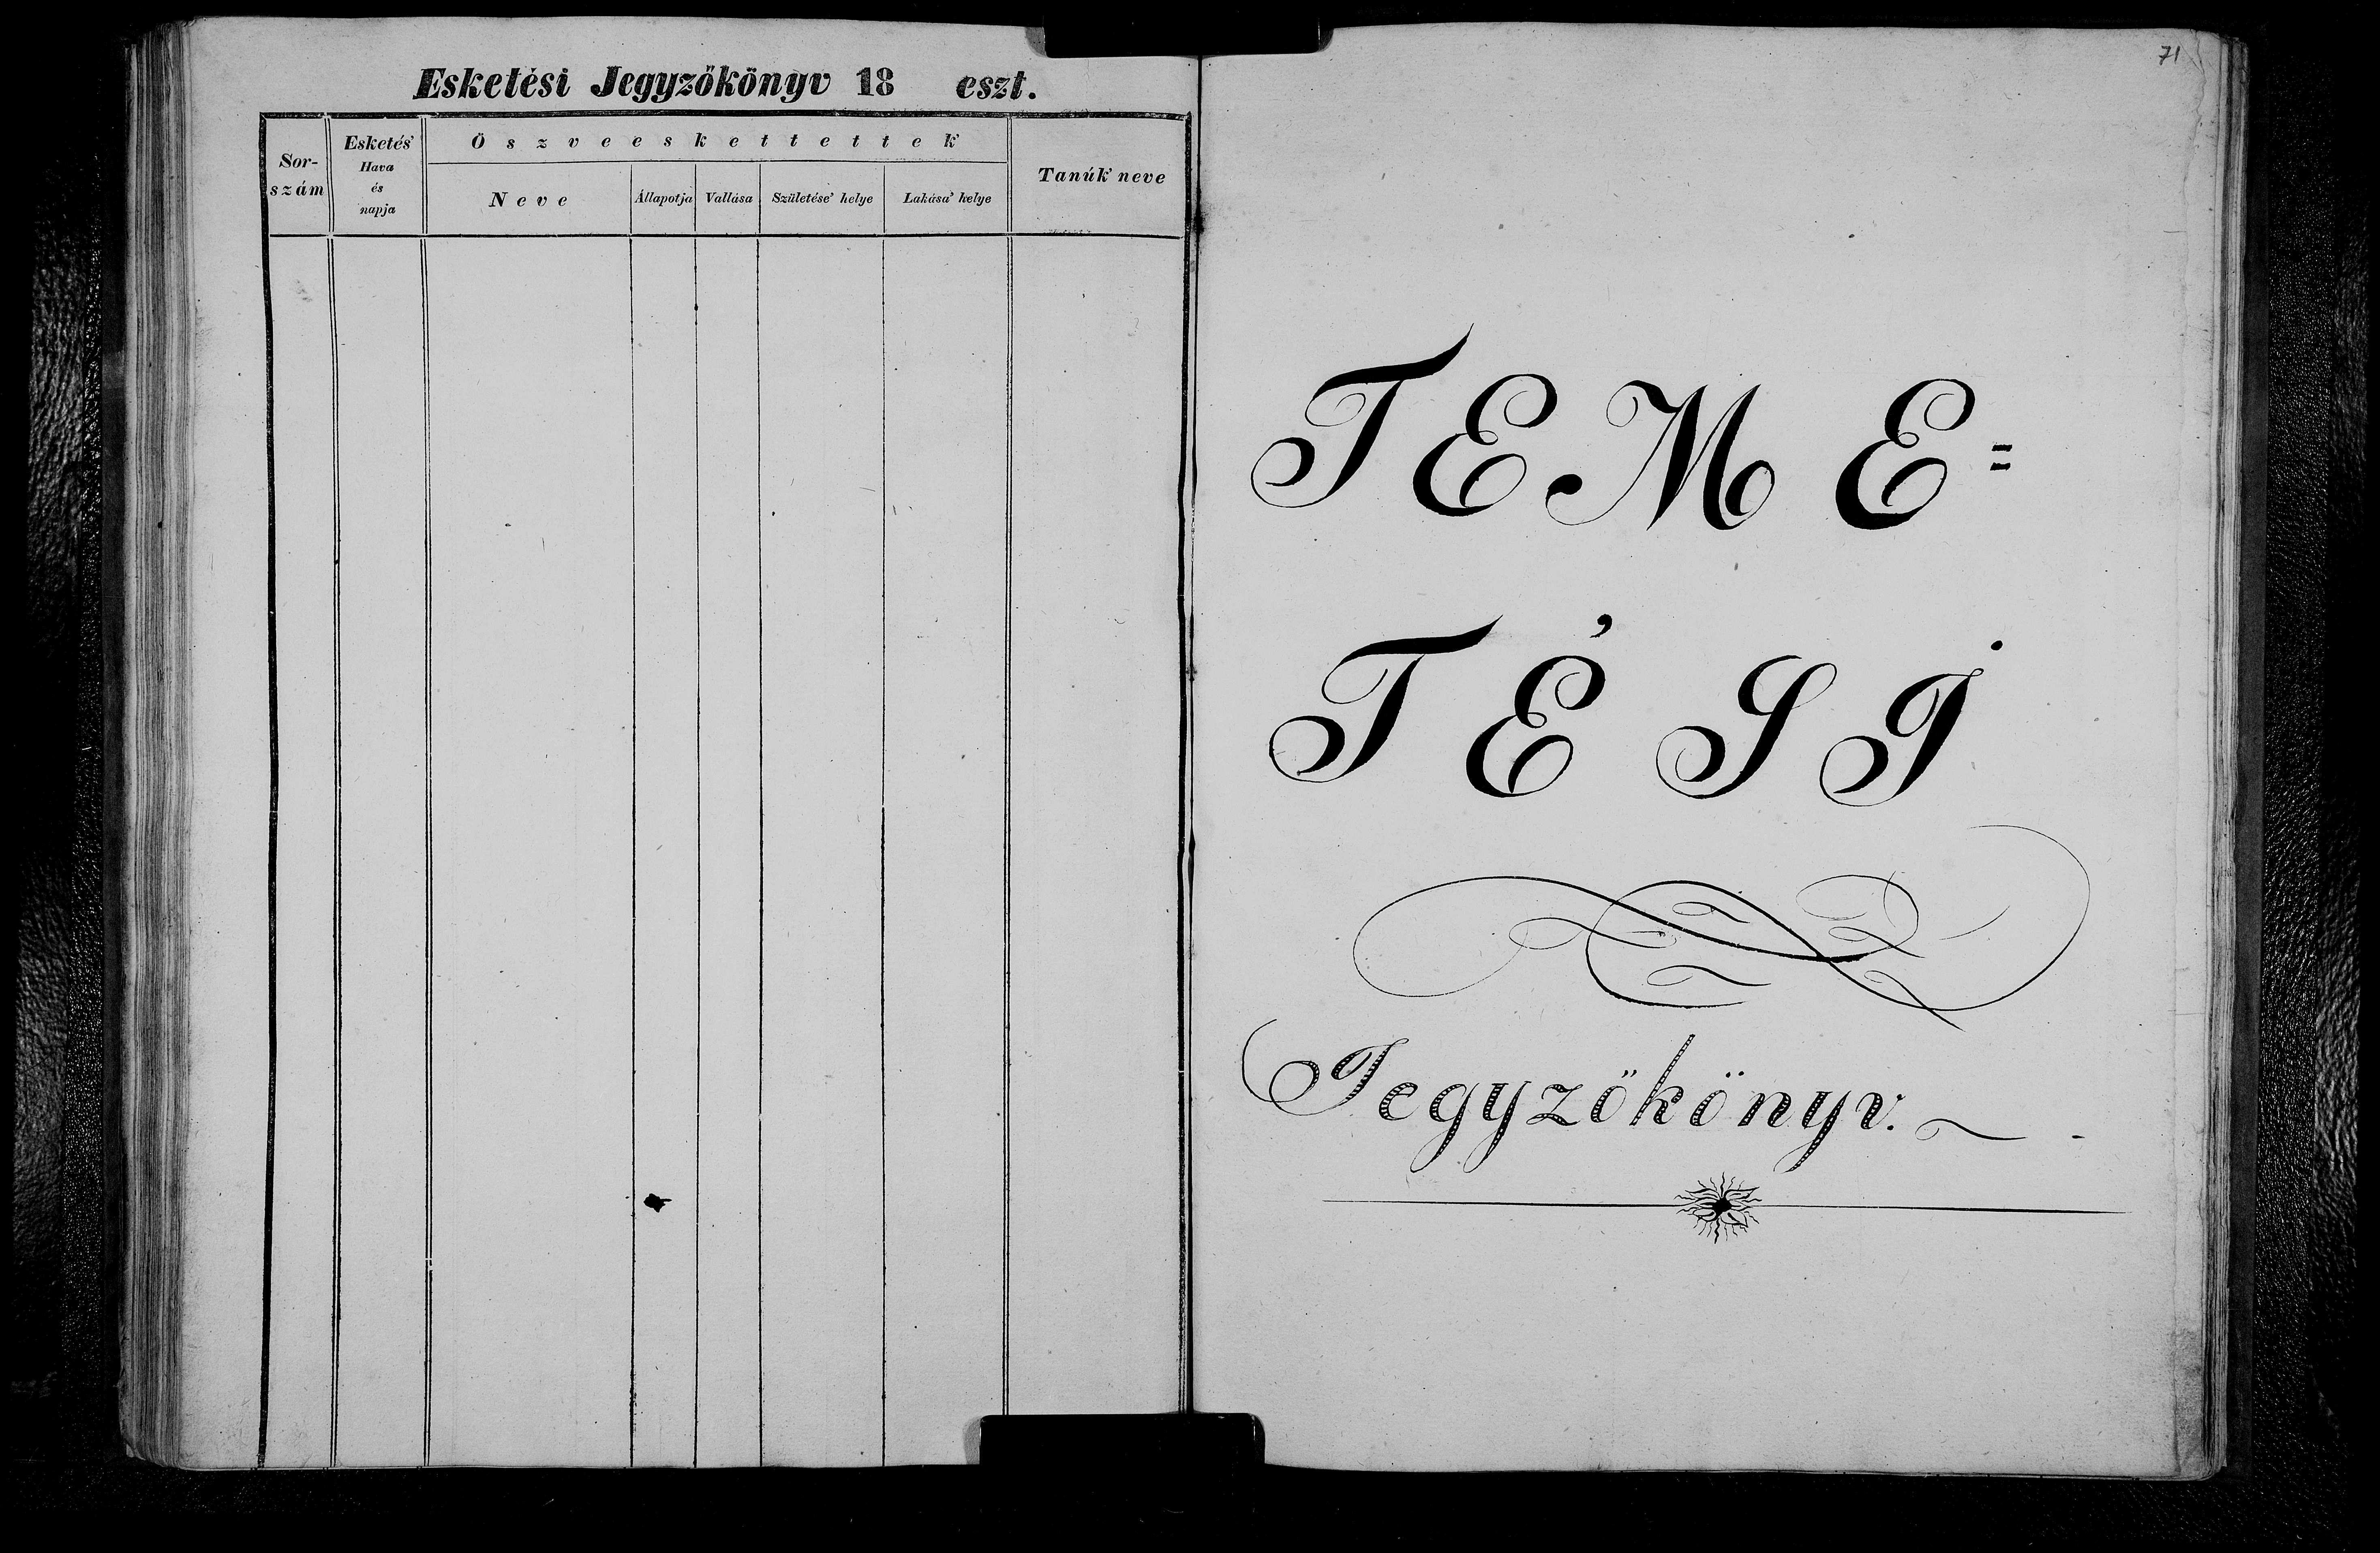 Esketési Jegyzőkönyv 18 eszt.
Sor-
szám
Esketés'
Hava
és
napja
Öszveeskettettek'
Neve
Állapotja
Vallása
Születése' helye
Lakása' helye
Tanúk' neve
71
TEME=
TÉSI
Jegyzőkönyv.